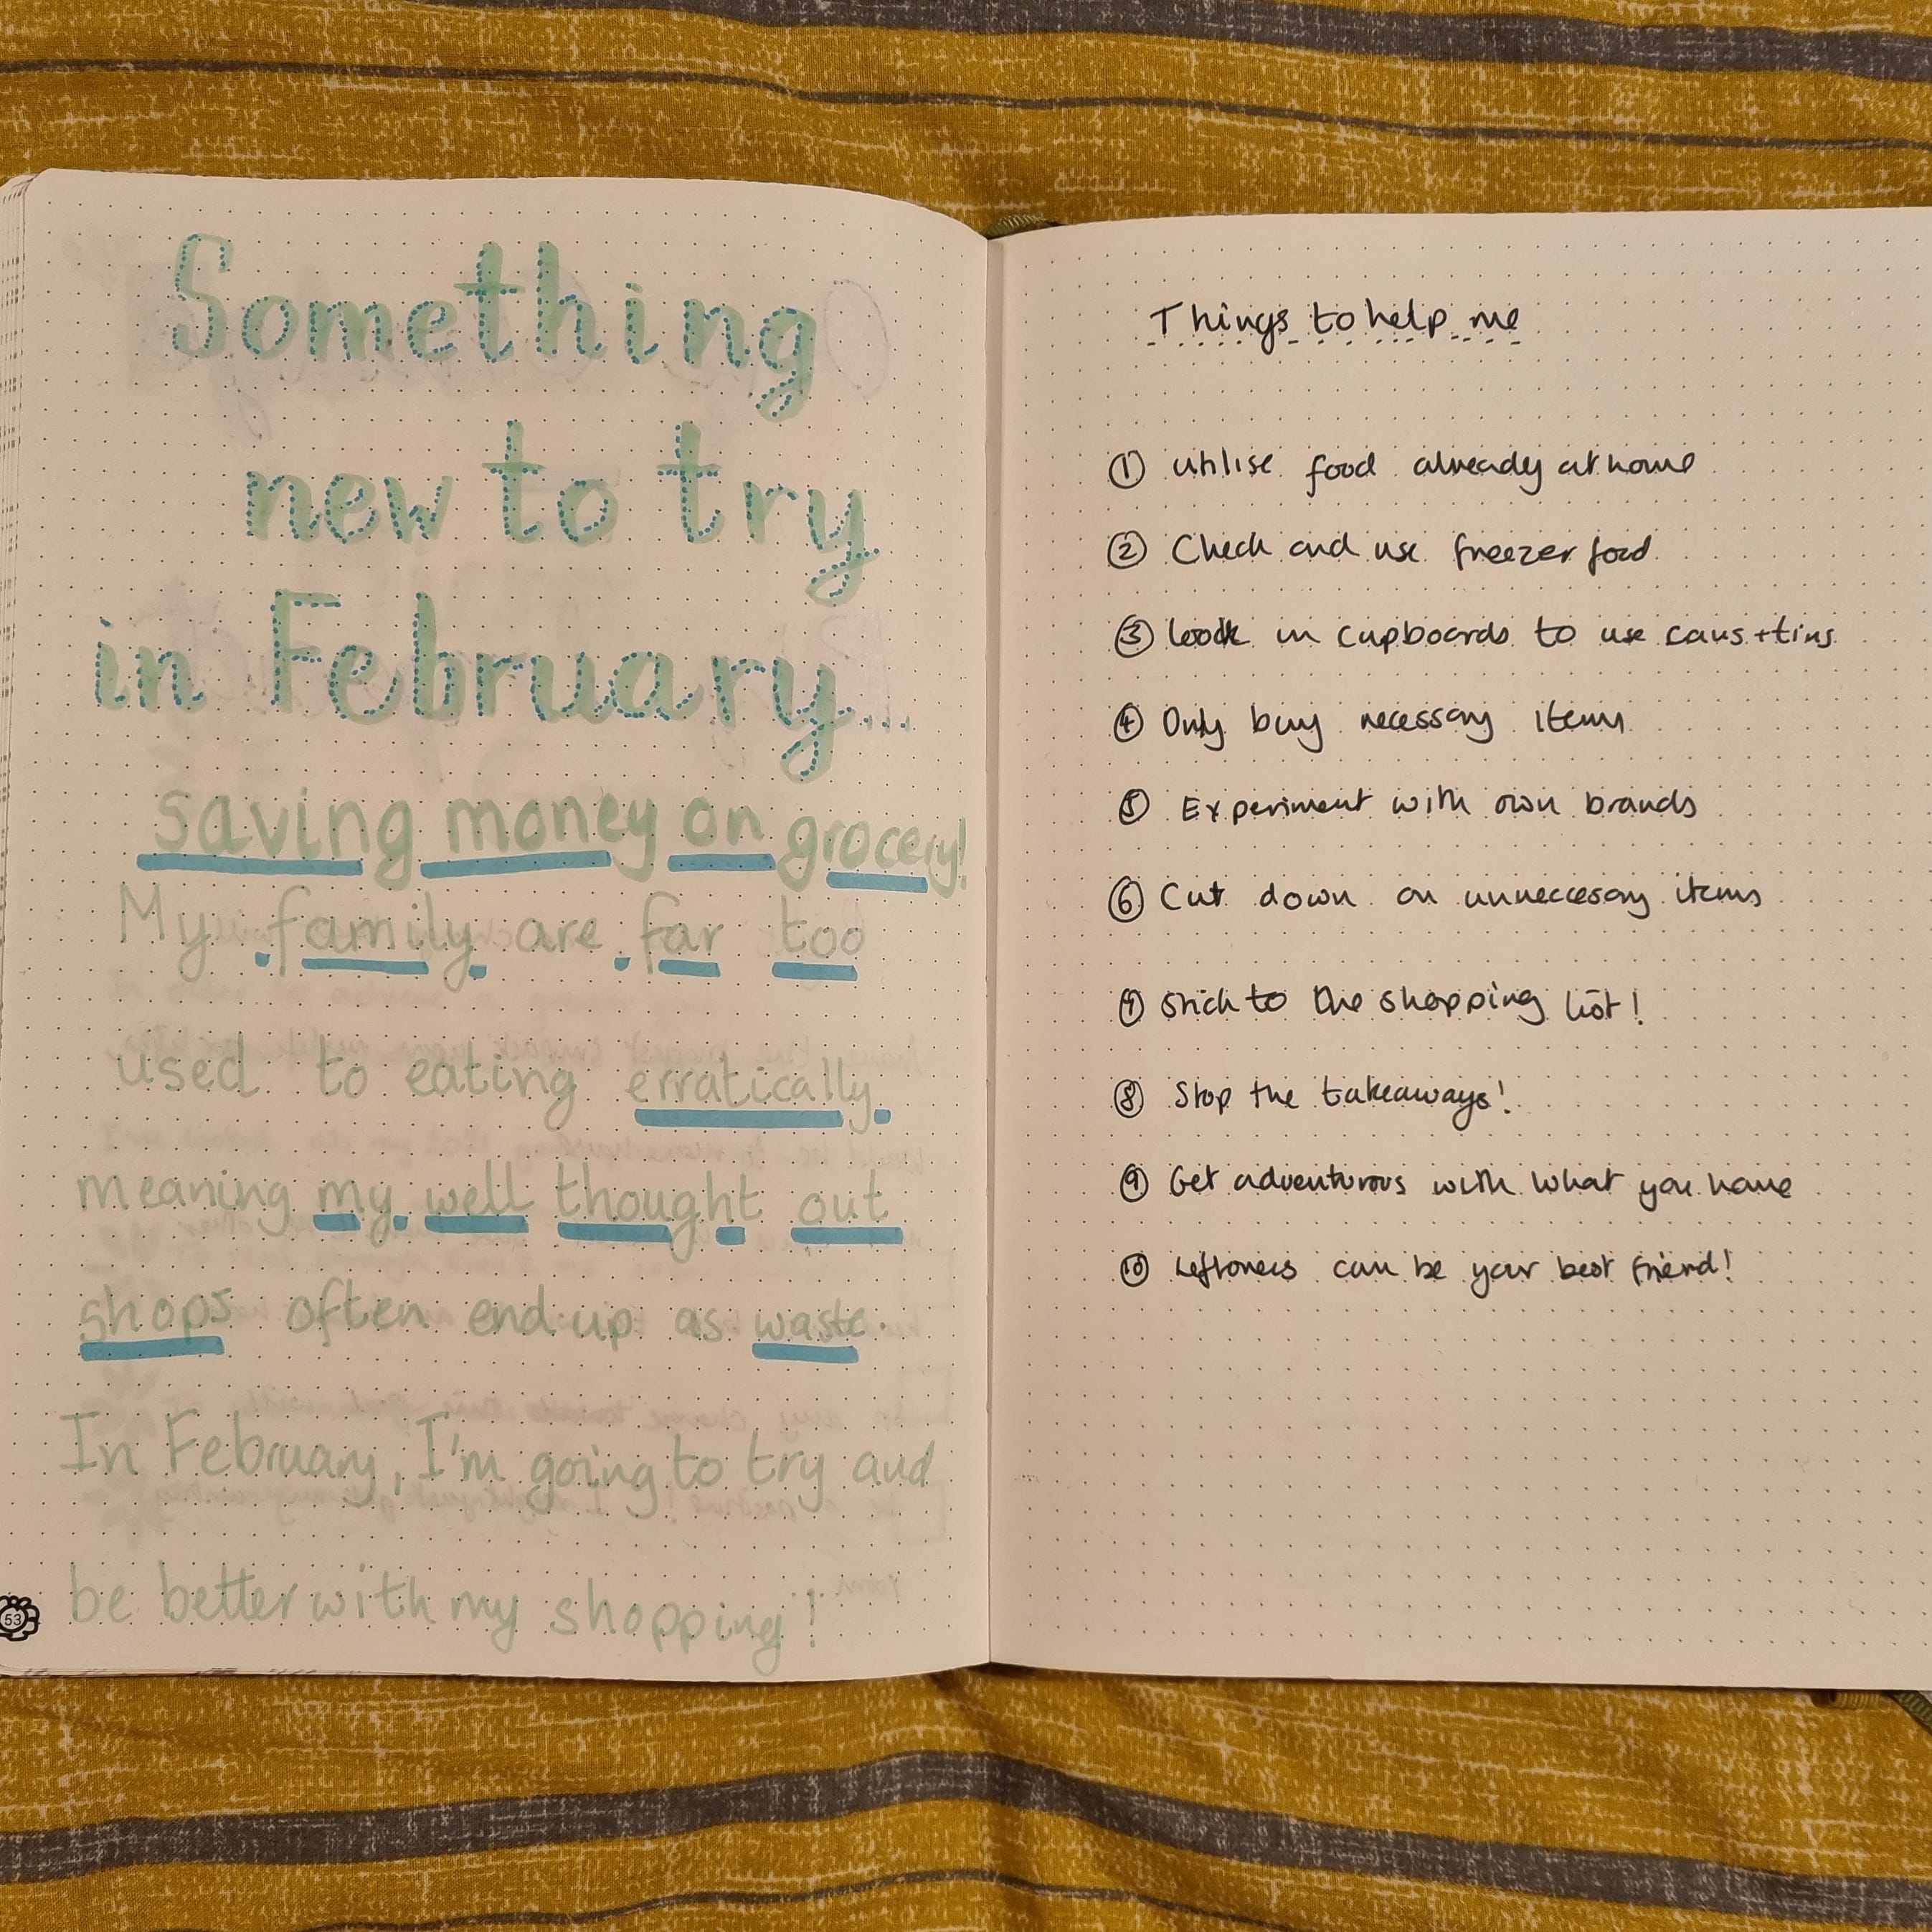 Something
new to try
in February...
saving money on grocery!
My family are far too
used to eating erratically.
meaning my well thought out
shops often end up as waste.
In February, I'm going to try and
be better with my shopping!
53
Things to help me
① utilise food already at home
② Check and use freezer food
③ look in cupboards to use cans + tins
④ Only buy necessary items
⑤ Experiment with own brands
⑥ Cut down on unneccesary items
⑦ Stick to the shopping list!
⑧ Stop the takeaways!
⑨ Get adventurous with what you have
⑩ Leftovers can be your best friend!